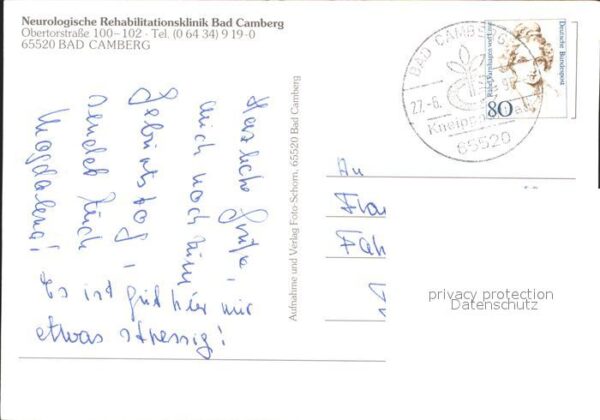 Neurologische Rehabilitationsklinik Bad Camberg
Obertorstraße 100–102 · Tel. (0 64 34) 9 19-0
65520 BAD CAMBERG
Herzliche Grüße,
auch noch zum
Geburtstag,
sendet Euch
Magdalena!
Es ist gut hier nur
etwas stressig!
Aufnahme und Verlag Foto-Schorn, 65520 Bad Camberg
BAD CAMBERG
27.-6.
65520
Deutsche Bundespost
80
An
Fah
privacy protection
Datenschutz